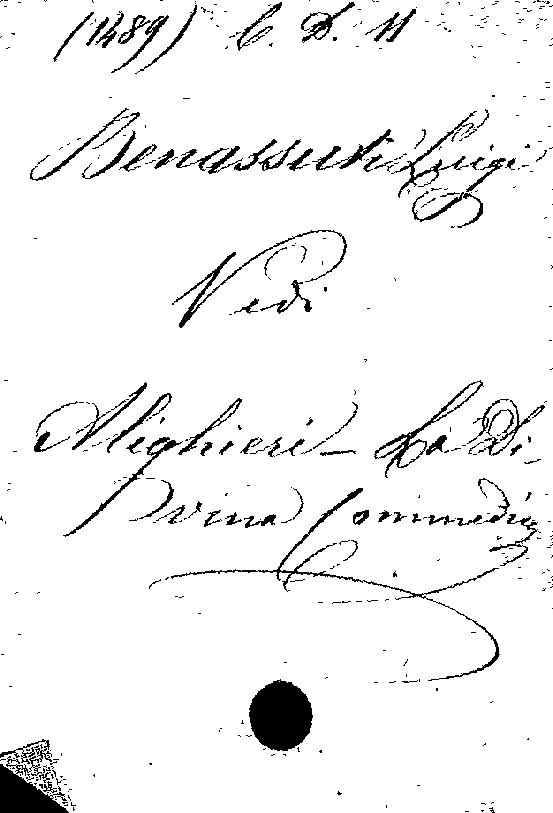 (1489) C. D. 11
Benassuti Luigi
Vedi
Alighieri - La Di-
vina Commedia